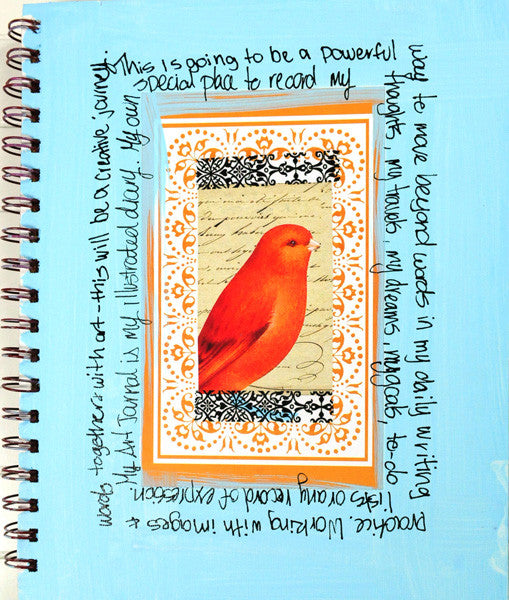 My Art Journal is my illustrated diary. My own
special place to record my
thoughts, my travels, my dreams, my goals, to-do
lists or any record of expression.
This is going to be a powerful
way to move beyond words in my daily writing
practice. Working with images &
words togethers with art--this will be a creative journey.